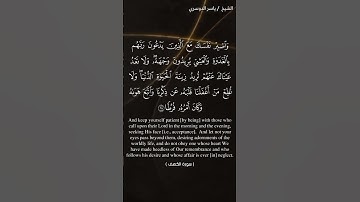 الشيخ / ياسر الدوسري
وَٱصْبِرْ نَفْسَكَ مَعَ ٱلَّذِينَ يَدْعُونَ رَبَّهُم
بِٱلْغَدَوٰةِ وَٱلْعَشِىِّ يُرِيدُونَ وَجْهَهُۥ وَلَا تَعْدُ
عَيْنَاكَ عَنْهُمْ تُرِيدُ زِينَةَ ٱلْحَيَوٰةِ ٱلدُّنْيَا وَلَا
تُطِعْ مَنْ أَغْفَلْنَا قَلْبَهُۥ عَن ذِكْرِنَا وَٱتَّبَعَ هَوَىٰهُ
وَكَانَ أَمْرُهُۥ فُرُطًا
And keep yourself patient [by being] with those who
call upon their Lord in the morning and the evening,
seeking His Face (i.e., acceptance). And let not your
eyes pass beyond them, desiring adornments of the
worldly life, and do not obey one whose heart We
have made heedless of Our remembrance and who
follows his desire and whose affair is ever [in] neglect.
( سورة الكهف )